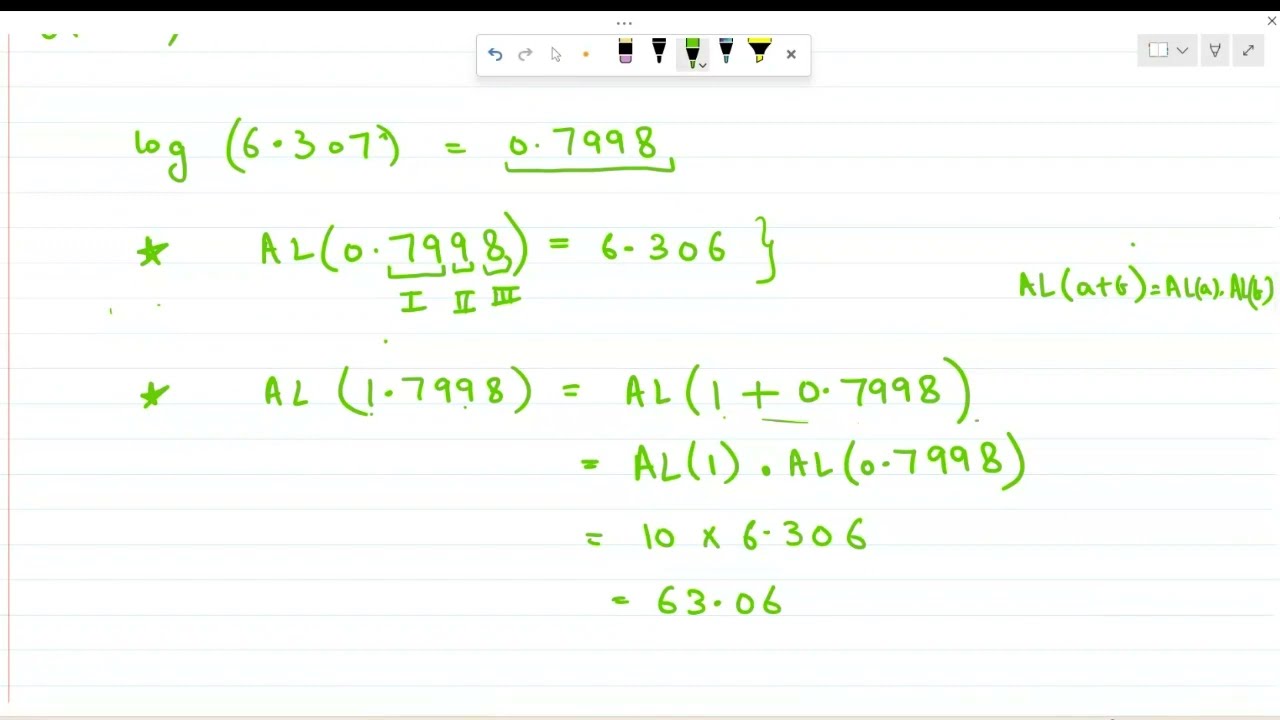 log (6.307) = 0.7998
★ AL(0.7998) = 6.306 }
I II III
AL(a+b)=AL(a).AL(b)
★ AL (1.7998) = AL(1 + 0.7998)
= AL(1) . AL(0.7998)
= 10 × 6.306
= 63.06